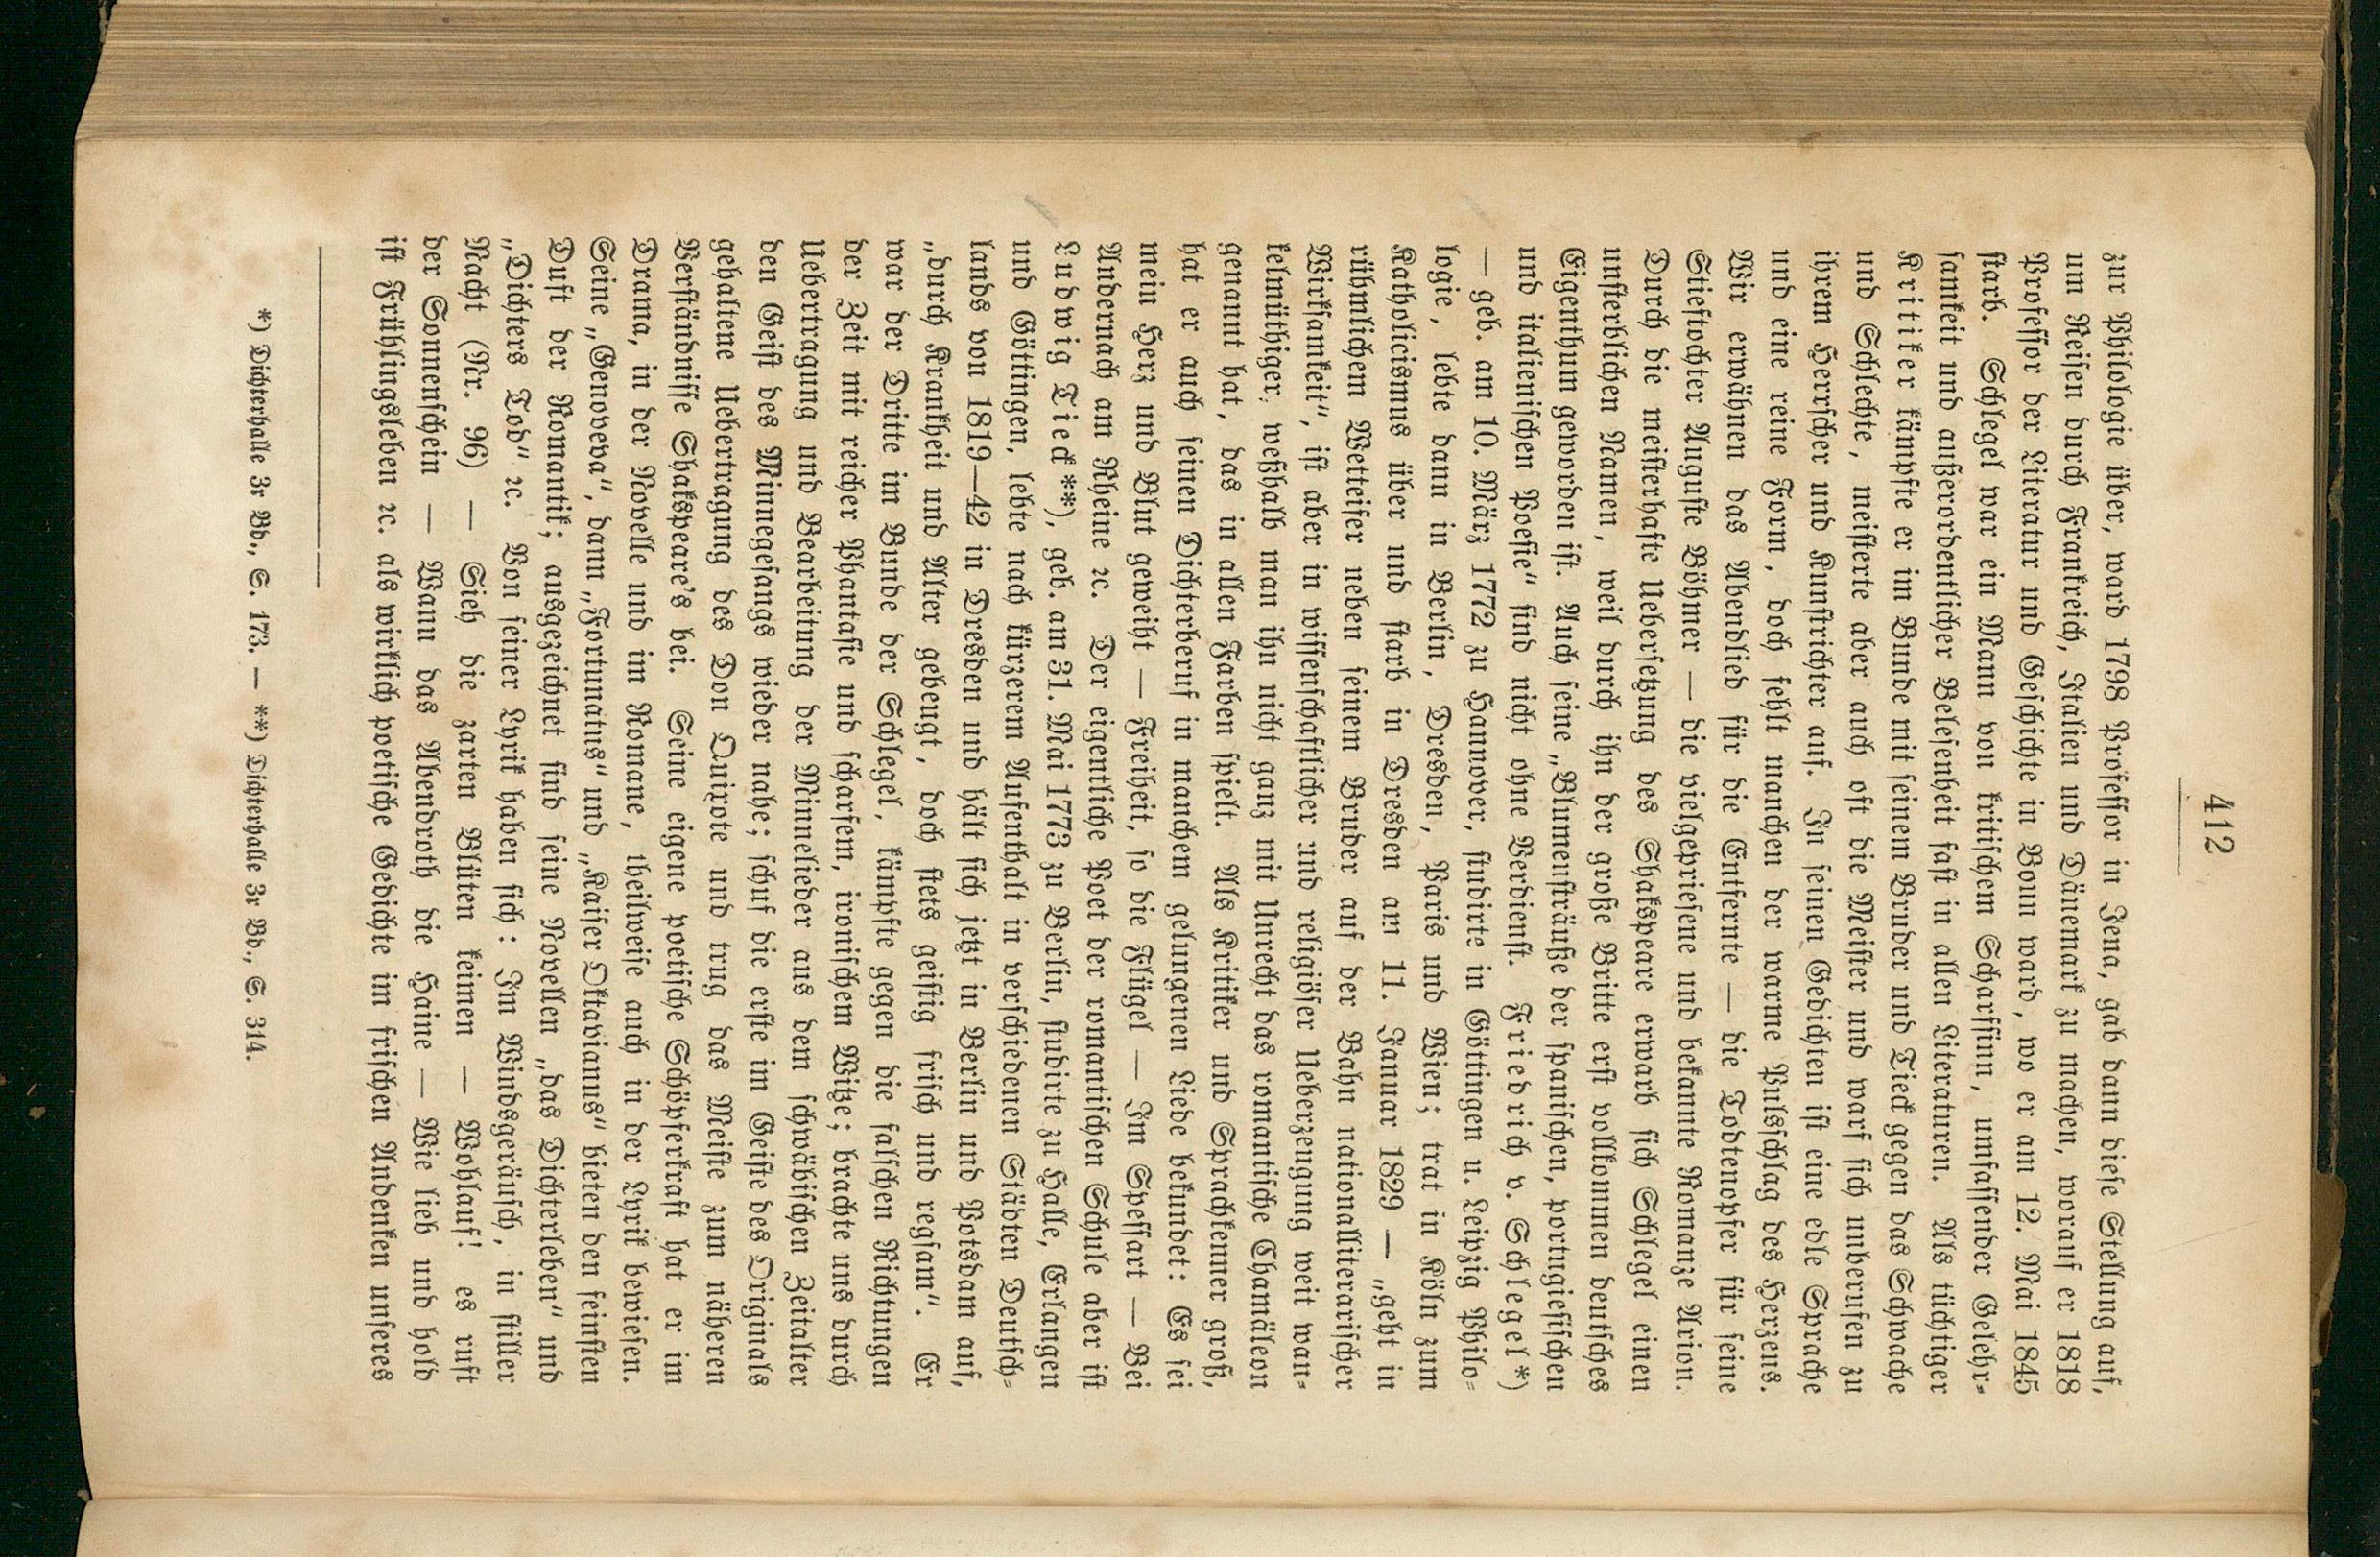 412
zur Philologie über, ward 1798 Professor in Jena, gab dann diese Stellung auf,
um Reisen durch Frankreich, Italien und Dänemark zu machen, worauf er 1818
Professor der Literatur und Geschichte in Bonn ward, wo er am 12. Mai 1845
starb. Schlegel war ein Mann von kritischem Scharfsinn, umfassender Gelehr-
samkeit und außerordentlicher Belesenheit fast in allen Literaturen. Als tüchtiger
Kritiker kämpfte er im Bunde mit seinem Bruder und Tieck gegen das Schwache
und Schlechte, meisterte aber auch oft die Meister und warf sich unberufen zu
ihrem Herrscher und Kunstrichter auf. In seinen Gedichten ist eine edle Sprache
und eine reine Form, doch fehlt manchen der warme Pulsschlag des Herzens.
Wir erwähnen das Abendlied für die Entfernte — die Todtenopfer für seine
Stieftochter Auguste Böhmer — die vielgepriesene und bekannte Romanze Arion.
Durch die meisterhafte Uebersetzung des Shakspeare erwarb sich Schlegel einen
unsterblichen Namen, weil durch ihn der große Britte erst vollkommen deutsches
Eigenthum geworden ist. Auch seine „Blumensträuße der spanischen, portugiesischen
und italienischen Poesie“ sind nicht ohne Verdienst. Friedrich v. Schlegel*)
— geb. am 10. März 1772 zu Hannover, studirte in Göttingen u. Leipzig Philo-
logie, lebte dann in Berlin, Dresden, Paris und Wien; trat in Köln zum
Katholicismus über und starb in Dresden am 11. Januar 1829 — „geht in
rühmlichem Wetteifer neben seinem Bruder auf der Bahn nationalliterarischer
Wirksamkeit“, ist aber in wissenschaftlicher und religiöser Ueberzeugung weit wan-
kelmüthiger, weßhalb man ihn nicht ganz mit Unrecht das romantische Chamäleon
genannt hat, das in allen Farben spielt. Als Kritiker und Sprachkenner groß,
hat er auch seinen Dichterberuf in manchem gelungenen Liede bekundet: Es sei
mein Herz und Blut geweiht — Freiheit, so die Flügel — Im Spessart — Bei
Andernach am Rheine ꝛc. Der eigentliche Poet der romantischen Schule aber ist
Ludwig Tieck**), geb. am 31. Mai 1773 zu Berlin, studirte zu Halle, Erlangen
und Göttingen, lebte nach kürzerem Aufenthalt in verschiedenen Städten Deutsch-
lands von 1819—42 in Dresden und hält sich jetzt in Berlin und Potsdam auf,
„durch Krankheit und Alter gebeugt, doch stets geistig frisch und regsam“. Er
war der Dritte im Bunde der Schlegel, kämpfte gegen die falschen Richtungen
der Zeit mit reicher Phantasie und scharfem, ironischem Witze; brachte uns durch
Uebertragung und Bearbeitung der Minnelieder aus dem schwäbischen Zeitalter
den Geist des Minnegesangs wieder nahe; schuf die erste im Geiste des Originals
gehaltene Uebertragung des Don Quixote und trug das Meiste zum näheren
Verständnisse Shakspeare's bei. Seine eigene poetische Schöpferkraft hat er im
Drama, in der Novelle und im Romane, theilweise auch in der Lyrik bewiesen.
Seine „Genoveva“, dann „Fortunatus“ und „Kaiser Oktavianus“ bieten den feinsten
Duft der Romantik; ausgezeichnet sind seine Novellen „das Dichterleben“ und
„Dichters Tod“ ꝛc. Von seiner Lyrik haben sich: Im Windsgeräusch, in stiller
Nacht (Nr. 96) — Sieh die zarten Blüten keimen — Wohlauf! es ruft
der Sonnenschein — Wann das Abendroth die Haine — Wie lieb und hold
ist Frühlingsleben ꝛc. als wirklich poetische Gedichte im frischen Andenken unseres
*) Dichterhalle 3r Bd., S. 173. — **) Dichterhalle 3r Bd., S. 314.